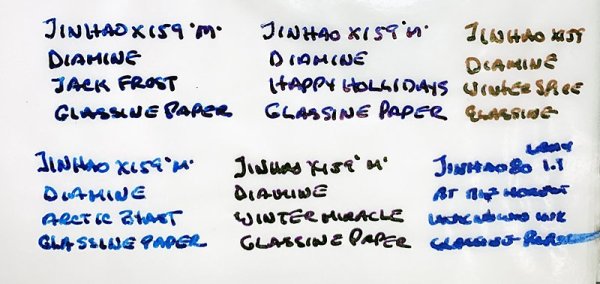 JINHAO X159 "M"
DIAMINE
JACK FROST
GLASSINE PAPER
JINHAO X159 "M"
DIAMINE
HAPPY HOLLIDAYS
GLASSINE PAPER
JINHAO X159
DIAMINE
WINTER SPICE
GLASSINE
JINHAO X159 "M"
DIAMINE
ARCTIC BLAST
GLASSINE PAPER
JINHAO X159 "M"
DIAMINE
WINTER MIRACLE
GLASSINE PAPER
LAMY
JINHAO 80 1.1
UNKNOWN INK
GLASSINE PAPER